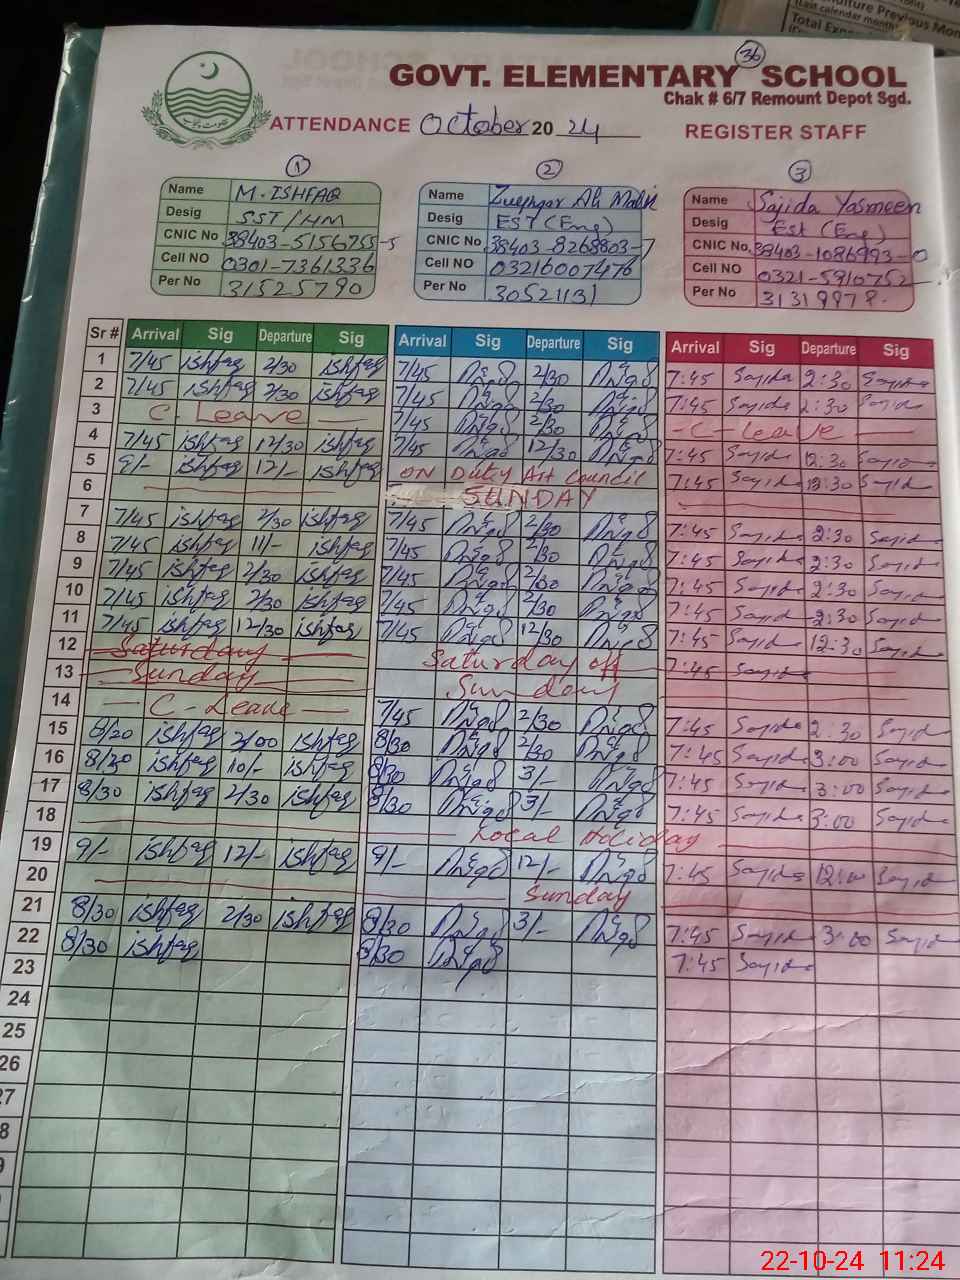 ulture Previous Mon
(Last calendar month
Total Expe
36
GOVT. ELEMENTARY SCHOOL
Chak # 6/7 Remount Depot Sgd.
ATTENDANCE October 2024 REGISTER STAFF
1 2 3
Name M. ISHFAQ
Desig SST/HM
CNIC No 38403-5156755-5
Cell NO 0301-7361336
Per No 31525790
Name Ali Malik
Desig EST (Eng)
CNIC No 38403-8268803-7
Cell NO 03216007476
Per No 30521131
Name Sajida Yasmeen
Desig Est (Eng)
CNIC No. 38403-1086993-0
Cell NO 0321-5910752
Per No 31319978.
Sr # Arrival Sig Departure Sig Arrival Sig Departure Sig Arrival Sig Departure Sig
1 7/45 ishfaq 2/30 ishfaq 7/45 2/30 7:45 Sajida 2:30 Sajida
2 7/45 ishfaq 2/30 ishfaq 7/45 2/30 7:45 Sajida 2:30 Sajida
3 C. Leave 7/45 2/30 -C-Leave
4 7/45 ishfaq 12/30 ishfaq 7/45 12/30 7:45 Sajida 12:30 Sajida
5 9/- ishfaq 12/- ishfaq ON Duty Art Council 7:45 Sajida 12:30 Sajida
6 SUNDAY
7 7/45 ishfaq 2/30 ishfaq 7/45 2/30 7:45 Sajida 2:30 Sajida
8 7/45 ishfaq 11/- ishfaq 7/45 2/30 7:45 Sajida 2:30 Sajida
9 7/45 ishfaq 2/30 ishfaq 7/45 2/30 7:45 Sajida 2:30 Sajida
10 7/45 ishfaq 2/30 ishfaq 7/45 2/30 7:45 Sajida 2:30 Sajida
11 7/45 ishfaq 12/30 ishfaq 7/45 12/30 7:45 Sajida 12:30 Sajida
12 Saturday Saturday off 7:45 Sajida
13 Sunday Sunday
14 C-Leave 7/45 2/30 7:45 Sajida 2:30 Sajida
15 8/20 ishfaq 2/00 ishfaq 8/30 2/30 7:45 Sajida 3:00 Sajida
16 8/30 ishfaq 10/- ishfaq 8/30 3/- 7:45 Sajida 3:00 Sajida
17 8/30 ishfaq 2/30 ishfaq 8/30 3/- 7:45 Sajida 3:00 Sajida
18 Local Holiday
19 9/- ishfaq 12/- ishfaq 9/- 12/- 7:45 Sajida 12:00 Sajida
20 Sunday
21 8/30 ishfaq 2/30 ishfaq 8/30 3/- 7:45 Sajida 3:00 Sajida
22 8/30 ishfaq 8/30 7:45 Sajida
23
24
25
26
27
8
9
22-10-24 11:24